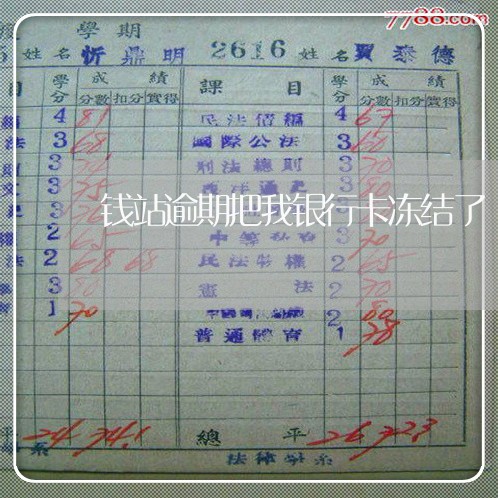 7788.com
度 學期
5 姓名 忻鼎明 2616 姓名 賈泰德
目 學分 成績 課目 學分 成績
分數 扣分 實得 分數 扣分 實得
4 81 民法債編 4 67
法 3 68 國際公法 3 60
則 3 刑法總則 3 70
文 3 75 3 80
钱站逾期把我银行卡冻结了
3
權 2 65 3 70
法 2 68 68 民法物權 2 65
3 80 憲法 2 70
育 1 70 2 80
普通體育 1 78
平 24 74.1 總平 26 72.3
系 法律學系